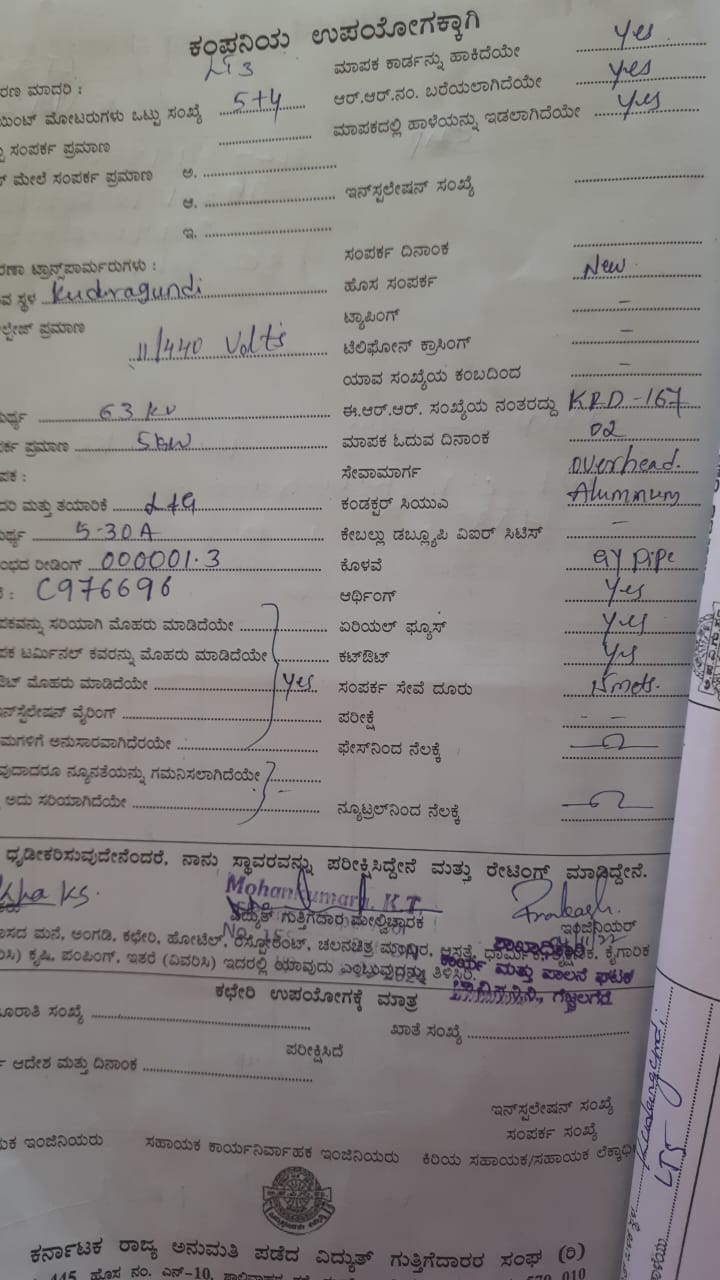 ಕಂಪನಿಯ ಉಪಯೋಗಕ್ಕಾಗಿ
LT3 ಮಾಪಕ ಕಾರ್ಡನ್ನು ಹಾಕಿದೆಯೇ yes
ರಣ ಮಾದರಿ : ಆರ್.ಆರ್.ನಂ. ಬರೆಯಲಾಗಿದೆಯೇ yes
ಯಿಂಟ್ ಮೋಟರುಗಳು ಒಟ್ಟು ಸಂಖ್ಯೆ 5+4 ಮಾಪಕದಲ್ಲಿ ಹಾಳೆಯನ್ನು ಇಡಲಾಗಿದೆಯೇ yes
ಸಂಪರ್ಕ ಪ್ರಮಾಣ
ಮೇಲೆ ಸಂಪರ್ಕ ಪ್ರಮಾಣ ಅ. ಇನ್‌ಸ್ಟಲೇಷನ್ ಸಂಖ್ಯೆ
ಆ.
ಇ. ಸಂಪರ್ಕ ದಿನಾಂಕ
ರಣಾ ಟ್ರಾನ್ಸ್‌ಪಾರ್ಮರುಗಳು : ಹೊಸ ಸಂಪರ್ಕ New
ವ ಸ್ಥಳ Kudragundi ಟ್ಯಾಪಿಂಗ್ –
ಲ್ಟೇಜ್ ಪ್ರಮಾಣ 11/440 Volts ಟೆಲಿಫೋನ್ ಕ್ರಾಸಿಂಗ್ –
ಯಾವ ಸಂಖ್ಯೆಯ ಕಂಬದಿಂದ –
ಮರ್ಥ್ಯ 63 kv ಈ.ಆರ್.ಆರ್. ಸಂಖ್ಯೆಯ ನಂತರದ್ದು KRD-167
ರ್ಕ ಪ್ರಮಾಣ 5kw ಮಾಪಕ ಓದುವ ದಿನಾಂಕ 02
ಪಕ : ಸೇವಾಮಾರ್ಗ overhead.
ದರಿ ಮತ್ತು ತಯಾರಿಕೆ L+G ಕಂಡಕ್ಟರ್ ಸಿಯುಎ Alumnum
ಮರ್ಥ್ಯ 5-30A ಕೇಬಲ್ಲು ಡಬ್ಲ್ಯೂಪಿ ವಿಐರ್ ಸಿಟಿಸ್ –
ಂಭದ ರೀಡಿಂಗ್ 000001.3 ಕೊಳವೆ GY pipe
: C976696 ಆರ್ಥಿಂಗ್ Yes
ಪಕವನ್ನು ಸರಿಯಾಗಿ ಮೊಹರು ಮಾಡಿದೆಯೇ ಏರಿಯಲ್ ಫ್ಯೂಸ್ yes
ಪಕ ಟರ್ಮಿನಲ್ ಕವರನ್ನು ಮೊಹರು ಮಾಡಿದೆಯೇ ಕಟ್‌ಔಟ್ yes
ಔಟ್ ಮೊಹರು ಮಾಡಿದೆಯೇ yes ಸಂಪರ್ಕ ಸೇವೆ ದೂರು
ನ್‌ಸ್ಟಲೇಷನ್ ವೈರಿಂಗ್ ಪರೀಕ್ಷೆ – –
ಮಗಳಿಗೆ ಅನುಸಾರವಾಗಿದೆರಯೇ ಫೇಸ್‌ನಿಂದ ನೆಲಕ್ಕೆ
ವುದಾದರೂ ನ್ಯೂನತೆಯನ್ನು ಗಮನಿಸಲಾಗಿದೆಯೇ
ಅದು ಸರಿಯಾಗಿದೆಯೇ ನ್ಯೂಟ್ರಲ್‌ನಿಂದ ನೆಲಕ್ಕೆ
ಧೃಡೀಕರಿಸುವುದೇನೆಂದರೆ, ನಾನು ಸ್ಥಾವರವನ್ನು ಪರೀಕ್ಷಿಸಿದ್ದೇನೆ ಮತ್ತು ರೇಟಿಂಗ್ ಮಾಡಿದ್ದೇನೆ.
KS. Mohankumara, K.T. Prakash.
ವಿದ್ಯುತ್ ಗುತ್ತಿಗೆದಾರ ಮೇಲ್ವಿಚಾರಕ ಇಂಜಿನಿಯರ್
ಾಸದ ಮನೆ, ಅಂಗಡಿ, ಕಛೇರಿ, ಹೋಟೆಲ್, ರೆಸ್ಟೋರೆಂಟ್, ಚಲನಚಿತ್ರ ಮಂದಿರ, ಆಸ್ಪತ್ರೆ, ಧಾರ್ಮಿಕ, ಕೈಗಾರಿಕ
ಕೃಷಿ, ಪಂಪಿಂಗ್, ಇತರೆ (ವಿವರಿಸಿ) ಇದರಲ್ಲಿ ಯಾವುದು ಎಂಬುವುದನ್ನು ತಿಳಿಸಿರಿ.
ಕಾರ್ಯ ಮತ್ತು ಪಾಲನೆ ಘಟಕ
ಕಛೇರಿ ಉಪಯೋಗಕ್ಕೆ ಮಾತ್ರ
ಠರಾತಿ ಸಂಖ್ಯೆ ಖಾತೆ ಸಂಖ್ಯೆ
ಪರೀಕ್ಷಿಸಿದೆ
ಆದೇಶ ಮತ್ತು ದಿನಾಂಕ
ಇನ್‌ಸ್ಟಲೇಷನ್ ಸಂಖ್ಯೆ
ಸಂಪರ್ಕ ಸಂಖ್ಯೆ
ಯಕ ಇಂಜಿನಿಯರು ಸಹಾಯಕ ಕಾರ್ಯನಿರ್ವಾಹಕ ಇಂಜಿನಿಯರು ಕಿರಿಯ ಸಹಾಯಕ/ಸಹಾಯಕ ಲೆಕ್ಕಾಧಿ
ಕರ್ನಾಟಕ ರಾಜ್ಯ ಅನುಮತಿ ಪಡೆದ ವಿದ್ಯುತ್ ಗುತ್ತಿಗೆದಾರರ ಸಂಘ (ರಿ)
445, ಹೊಸ ನಂ. ಎನ್-10,